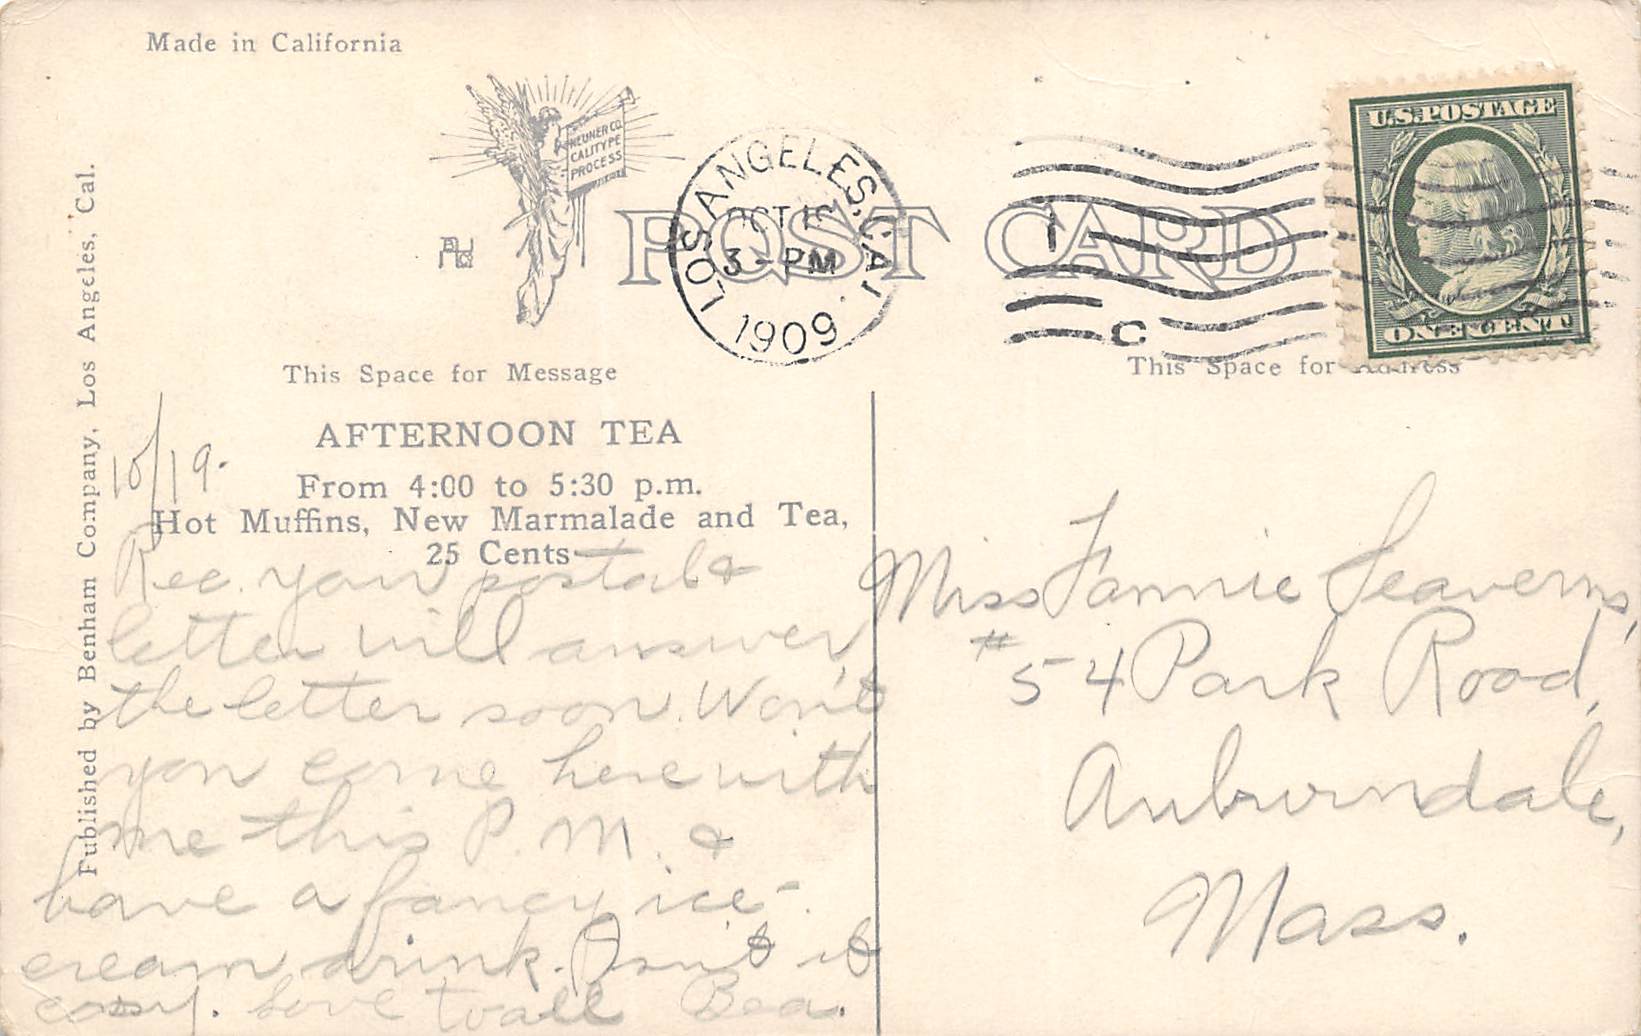 Made in California
NEUNER CO.
CALITYPE
PROCESS
POST CARD
LOS ANGELES, CAL.
OCT 19
3 - PM
1909
C
U.S. POSTAGE
ONE CENT
This Space for Message
This Space for Address
Published by Benham Company, Los Angeles, Cal.
AFTERNOON TEA
From 4:00 to 5:30 p.m.
Hot Muffins, New Marmalade and Tea,
25 Cents
10/19.
Rec. your postal &
letter will answer
the letter soon. Won't
you come here with
me this P.M. &
have a fancy ice-
cream drink. Isn't it
cosy. Love to all Bea.
Miss Fannie Seaverns,
# 54 Park Road,
Auburndale,
Mass.